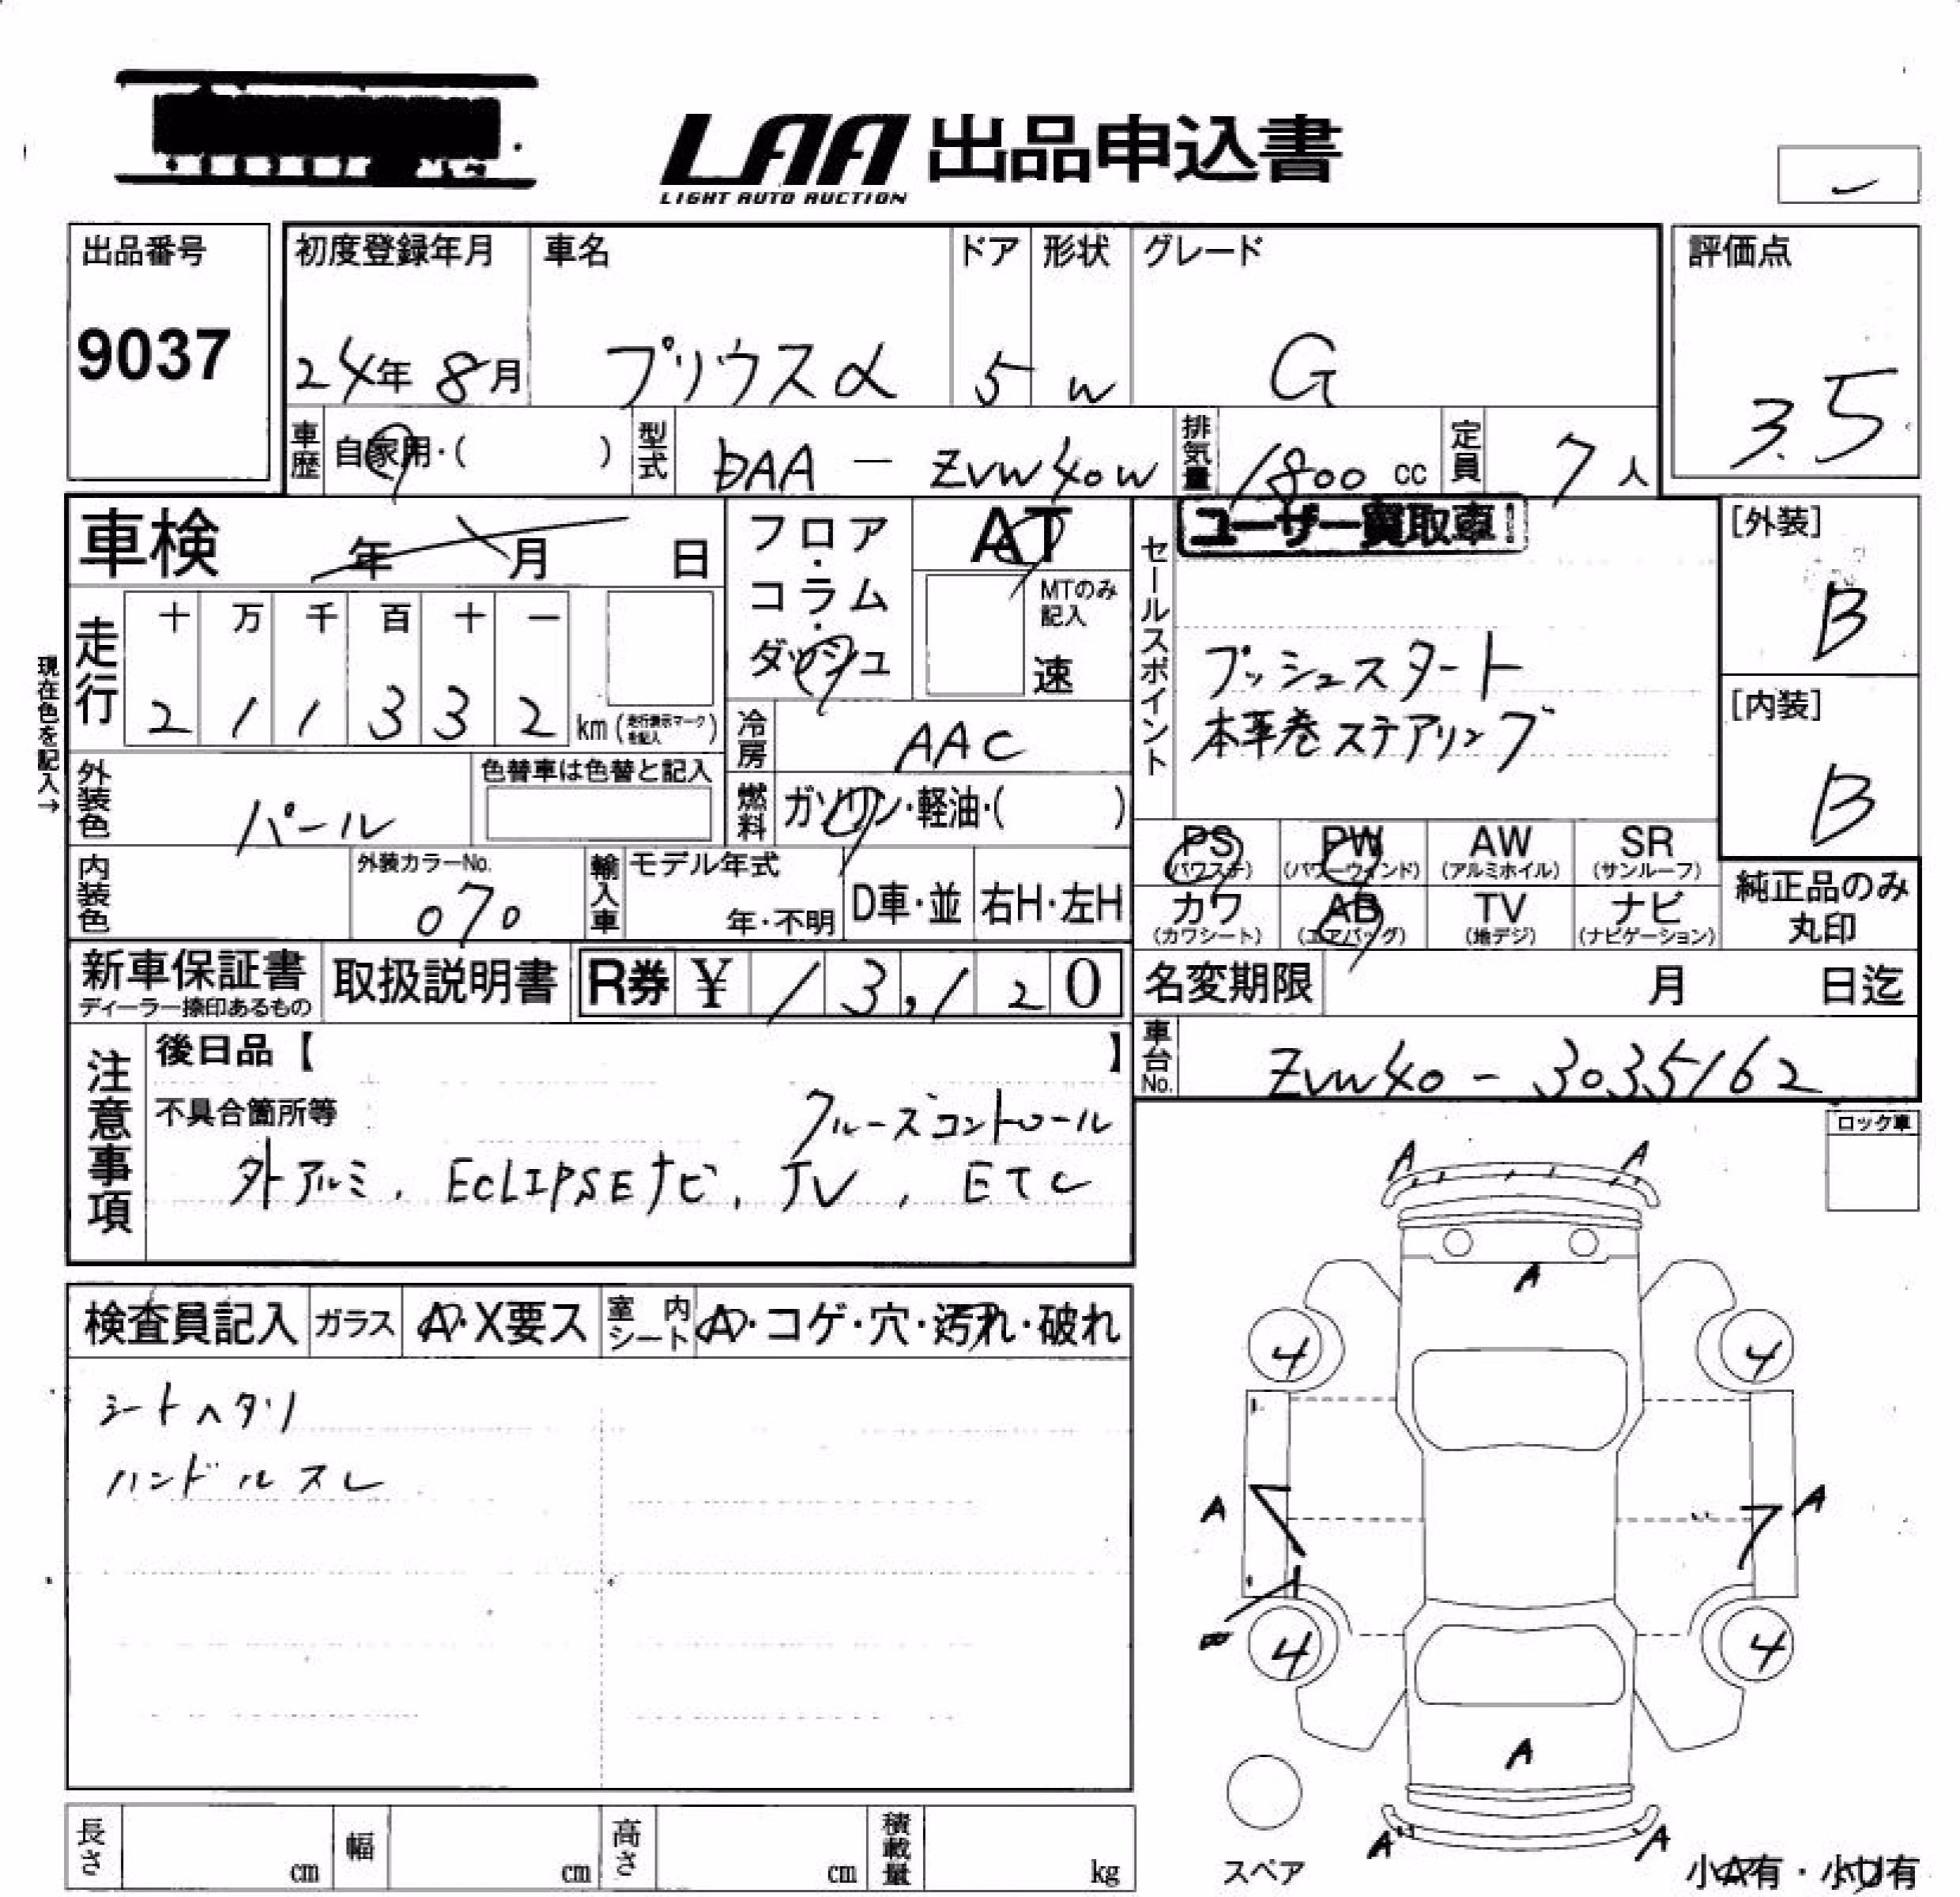 LAA 出品申込書
LIGHT AUTO AUCTION
出品番号
9037
初度登録年月
24年 8月
車名
プリウスα
ドア
5
形状
W
グレード
G
評価点
3.5
車歴
自家用・( )
型式
DAA - ZVW40W
排気量
1800 cc
定員
7人
車検 年 月 日
フロア・コラム・ダッシュ
AT
MTのみ記入
速
セールスポイント
ユーザー買取車
プッシュスタート
本革巻ステアリング
[外装]
B
[内装]
B
現在色を記入→
走行
十 万 千 百 十 一
2 1 1 3 3 2 km (走行表示マークを記入)
冷房
AAC
外装色
パール
色替車は色替と記入
燃料
ガソリン・軽油・( )
内装色
外装カラーNo.
070
輸入車
モデル年式
年・不明
D車・並
右H・左H
PS
(パワステ)
PW
(パワーウィンド)
AW
(アルミホイル)
SR
(サンルーフ)
カワ
(カワシート)
AB
(エアバッグ)
TV
(地デジ)
ナビ
(ナビゲーション)
純正品のみ
丸印
新車保証書
ディーラー捺印あるもの
取扱説明書
R券 ¥ 13,120
名変期限 月 日迄
車台No.
ZVW40 - 3035162
注意事項
後日品【 】
不具合箇所等
クルーズコントロール
外アルミ, ECLIPSEナビ, TV, ETC
ロック車
検査員記入
ガラス
A・X要ス
室内シート
A・コゲ・穴・汚れ・破れ
シートヘタリ
ハンドルスレ
A A
A
4 4
A A
4 4
A
A A
スペア
小A有・小U有
長さ cm
幅 cm
高さ cm
積載量 kg